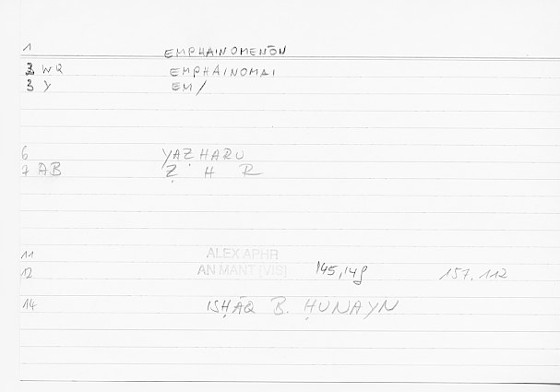 1 EMPHAINOMENŌN
2 WR EMPHAINOMAI
3 Y EM/
6 YAẒHARU
7 AB Ẓ H R
11 ALEX APHR
12 AN MANT [VIS] 145,14g 157.112
14 ISḤĀQ B. ḤUNAYN